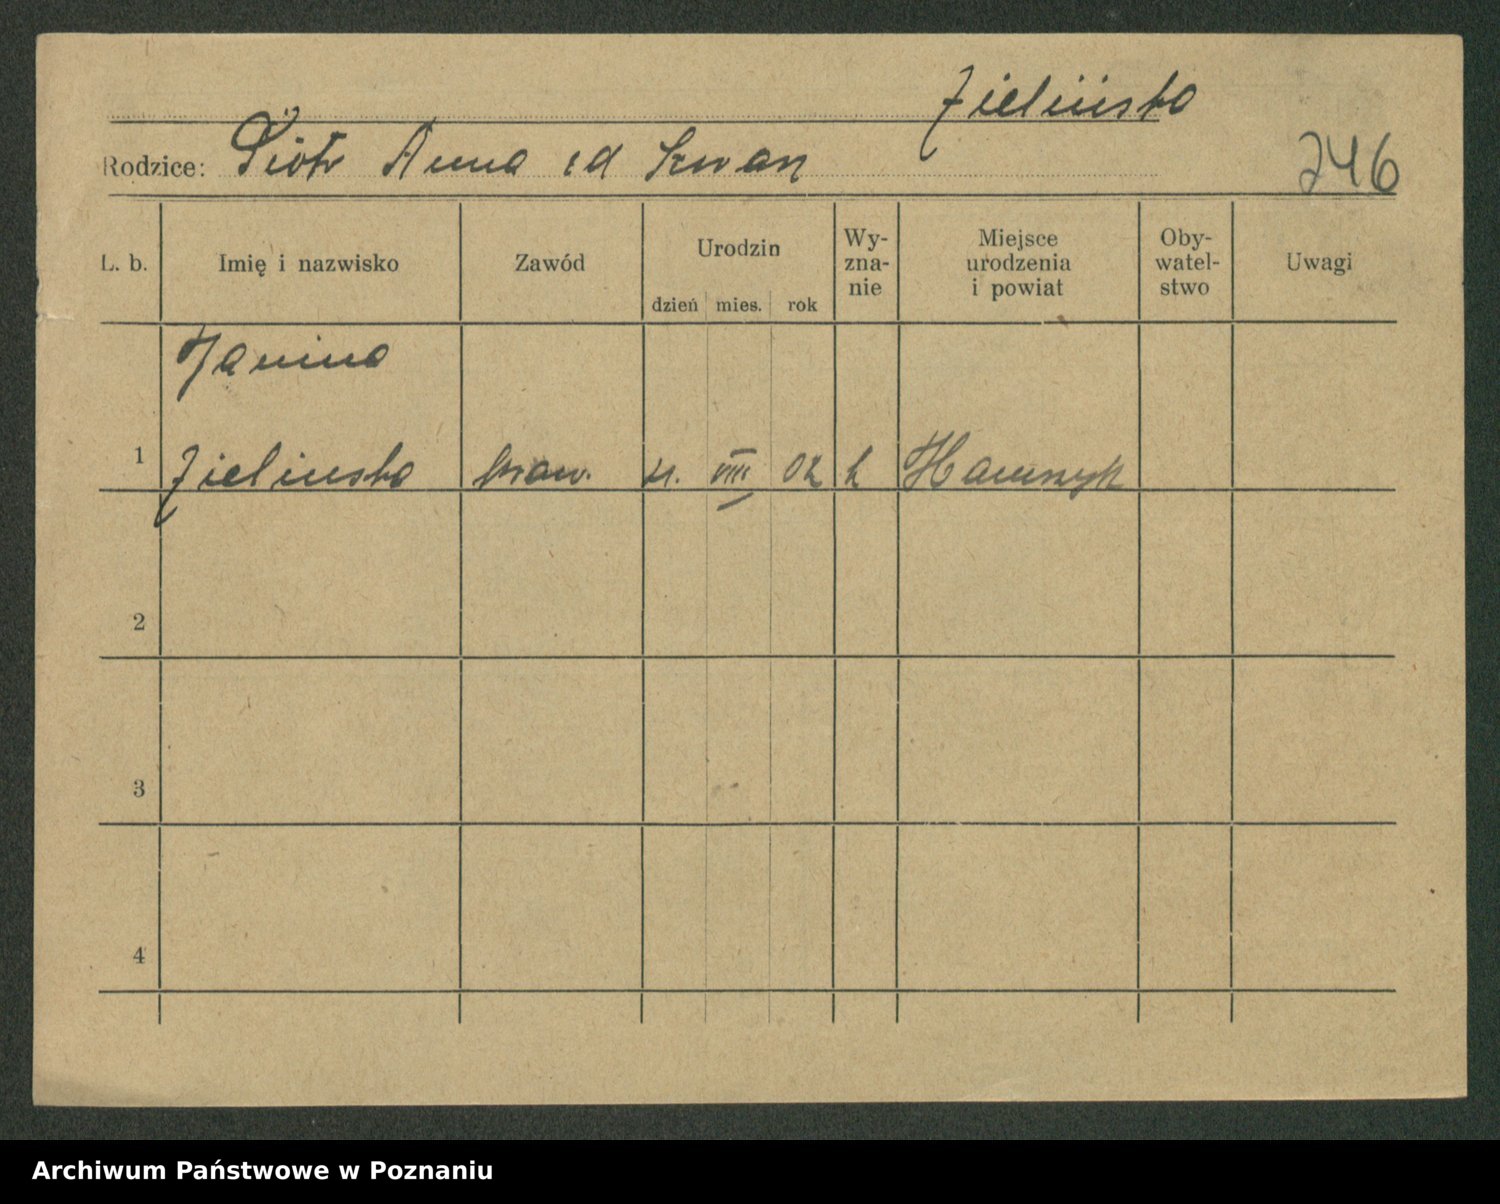 Zielińska
Rodzice: Piotr Anna
246
L. b. Imię i nazwisko Zawód Urodzin dzień mies. rok Wy-zna-nie Miejsce urodzenia i powiat Oby-watel-stwo Uwagi
Janina
1 Zielinska kraw. VIII 02 k
2
3
4
Archiwum Państwowe w Poznaniu